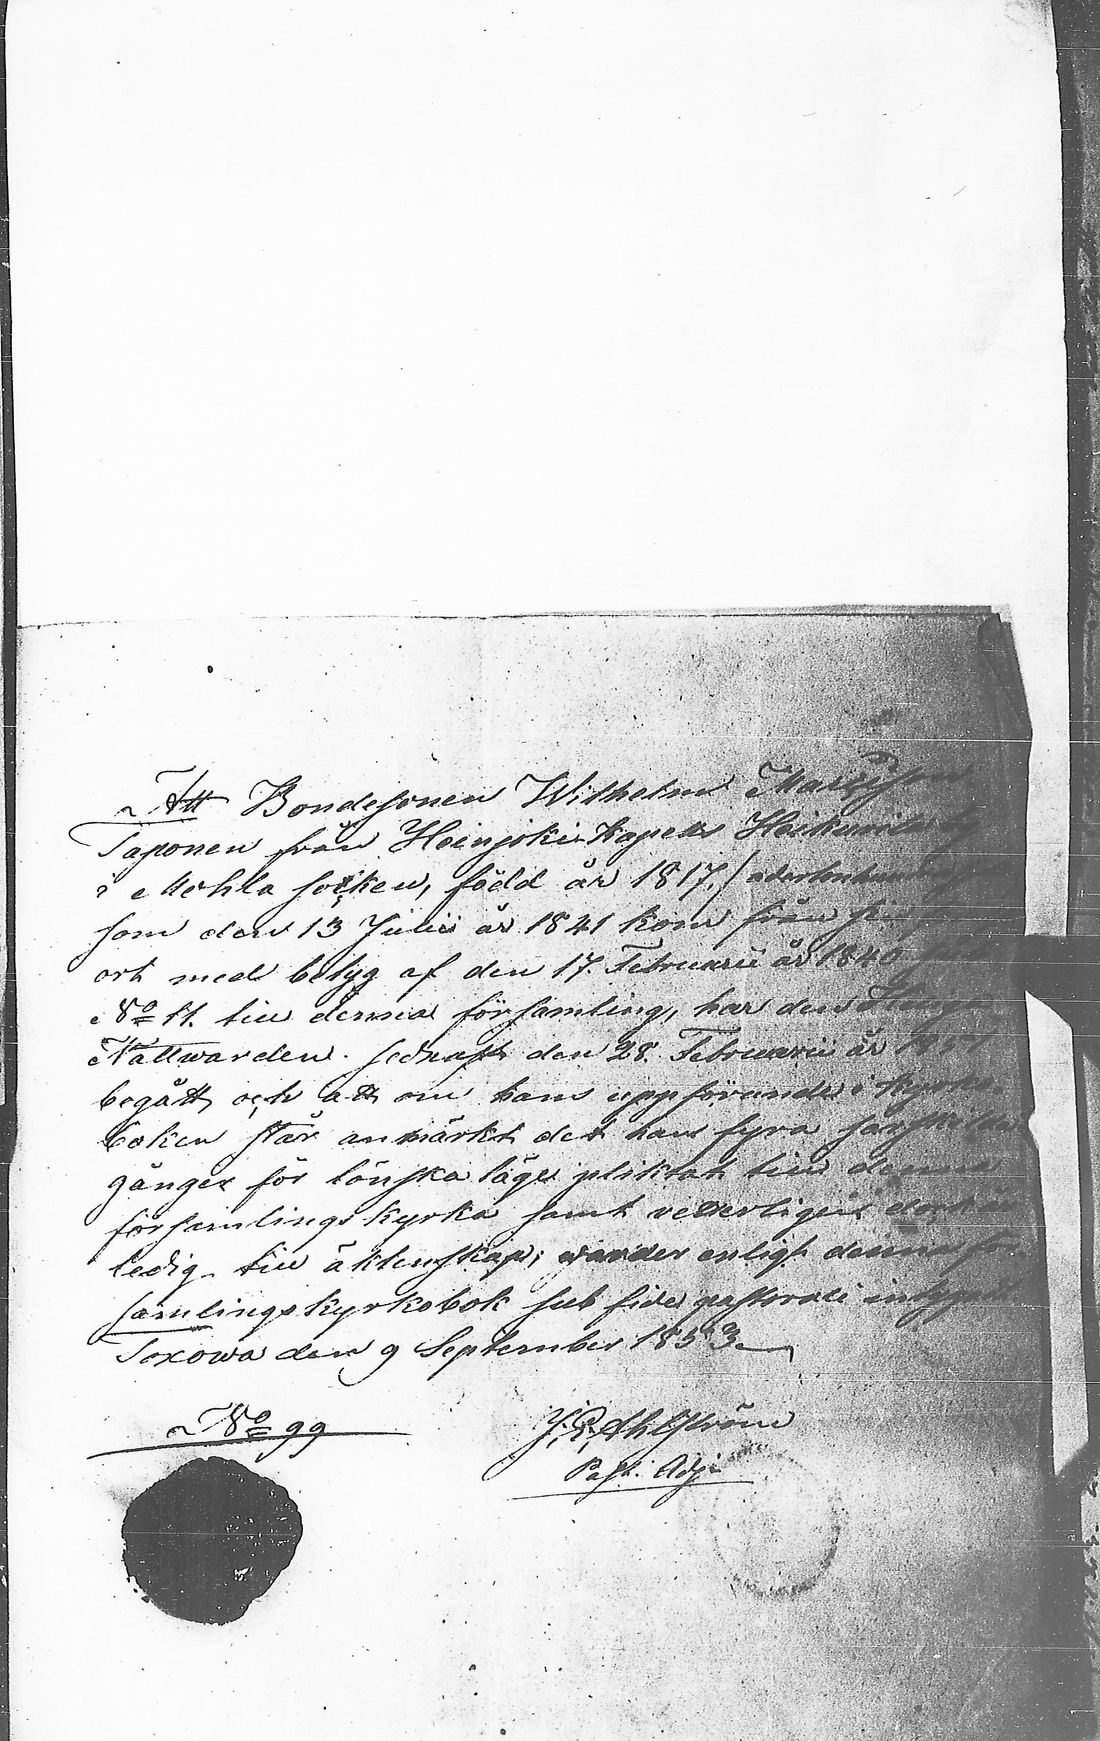 Att Bondesonen Wilhelm
Taponen från Heinjoki Kapells
i Mohla socken, född år 1817,
som den 13 Julii år 1841 kom från
ort med betyg af den 17. Februarii år 1840
No 11. till denna församling, har den
Nattwarden sednast den 28. Februarii år
begått, och att om hans uppförande i
boken står anmärkt det han fyra
gånger för lönska läge pliktat till denna
församlings kyrka samt vederligen
ledig till äktenskap; warder enligt denna
samlings kyrkobok sub fide pastorali
Toxowa den 9 September 1853.
No 99
J. E. Ahlström
Past. Adj.